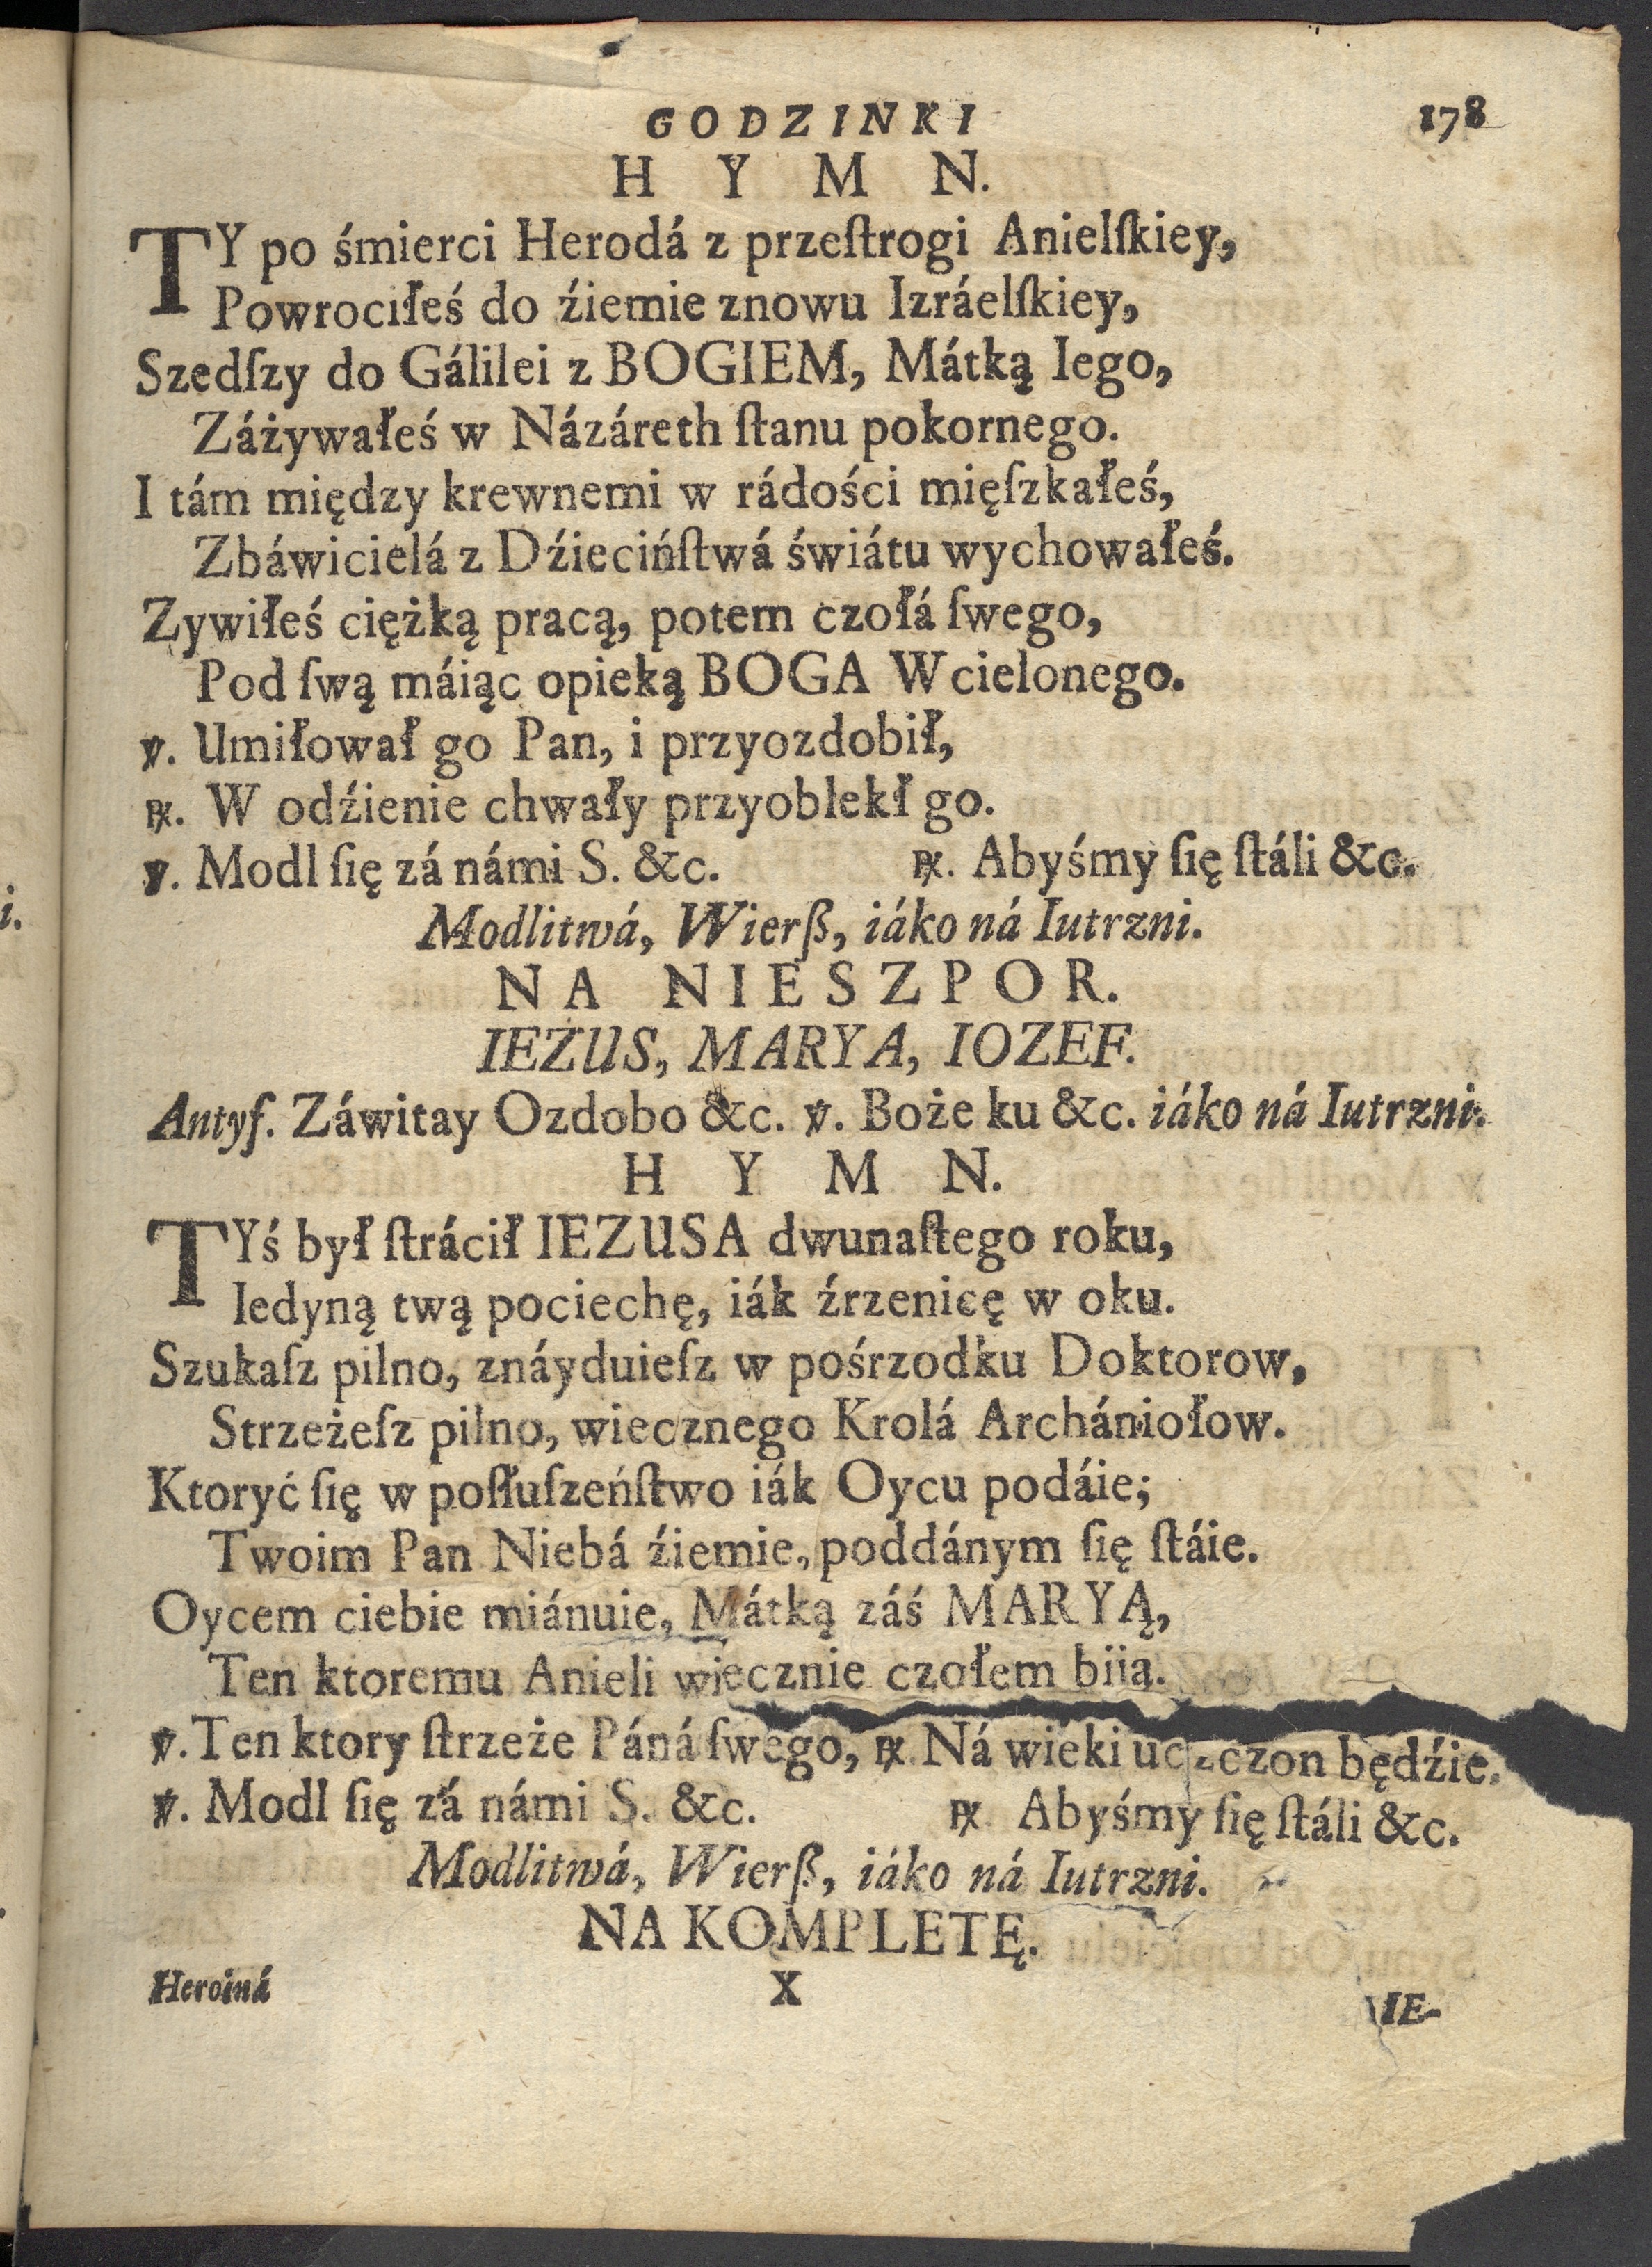 GODZINKI 178
HYMN.
TY po śmierci Herodá z przeſtrogi Anielſkiey,
Powrociłeś do źiemie znowu Izráelſkiey,
Szedſzy do Gálilei z BOGIEM, Mátką Iego,
Záżywałeś w Názáreth ſtanu pokornego.
I tám między krewnemi w rádości mięſzkałeś,
Zbáwicielá z Dźiecińſtwá świátu wychowałeś.
Zywiłeś ciężką pracą, potem czołá ſwego,
Pod ſwą máiąc opieką BOGA Wcielonego.
℣. Umiłował go Pan, i przyozdobił,
℟. W odźienie chwały przyoblekł go.
℣. Modl ſię zá námi S. &c. ℟. Abyśmy ſię ſtáli &c.
Modlitwá, Wierß, iáko ná Iutrzni.
NA NIESZPOR.
IEZUS, MARYA, IOZEF.
Antyf. Záwitay Ozdobo &c. ℣. Boże ku &c. iáko ná Iutrzni.
HYMN.
TYś był ſtráćił IEZUSA dwunaſtego roku,
Iedyną twą pociechę, iák źrzenicę w oku.
Szukaſz pilno, znáyduieſz w pośrzodku Doktorow,
Strzeżeſz pilno, wiecznego Krolá Archániołow.
Ktoryć ſię w poſłuſzeńſtwo iák Oycu podáie;
Twoim Pan Niebá źiemie, poddánym ſię ſtáie.
Oycem ciebie miánuie, Mátką záś MARYĄ,
Ten ktoremu Anieli wiecznie czołem biią.
℣. Ten ktory ſtrzeże Páná ſwego, ℟. Ná wieki uczczon będźie.
℣. Modl ſię zá námi S. &c. ℟ Abyśmy ſię ſtáli &c.
Modlitwá, Wierß, iáko ná Iutrzni.
NA KOMPLETĘ.
Heroiná X IE-